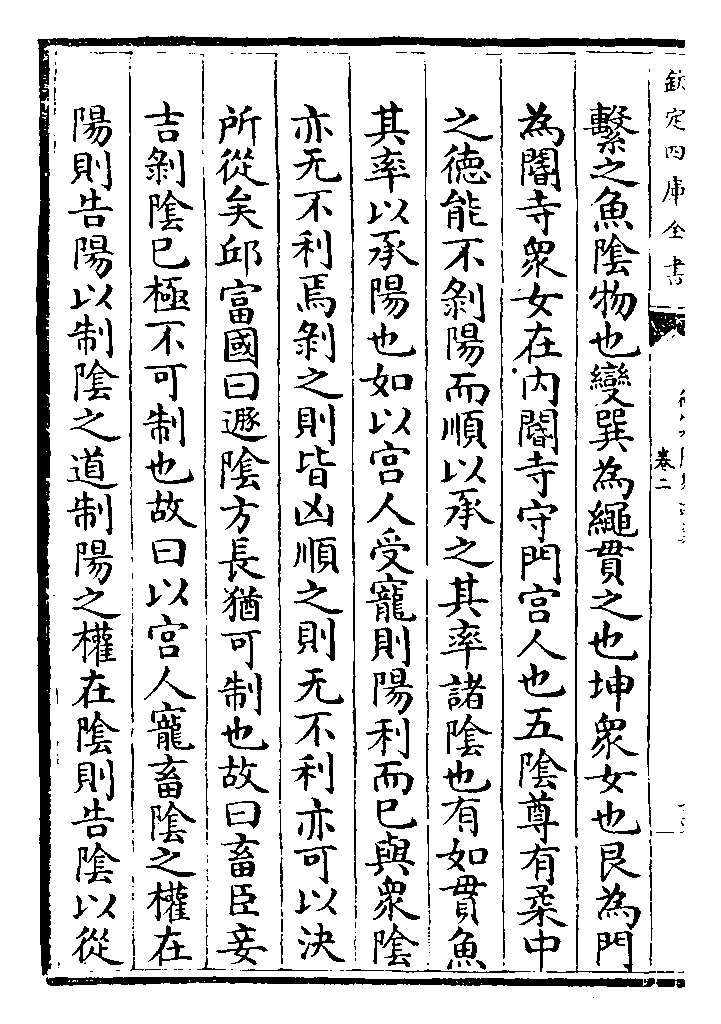 欽定四庫全書
卷二
繫之魚隂物也變巽為繩貫之也坤衆女也艮為門
為閽寺衆女在内閽寺守門宫人也五隂尊有柔中
之德能不剝陽而順以承之其率諸隂也有如貫魚
其率以承陽也如以宫人受寵則陽利而已與衆隂
亦无不利焉剝之則皆凶順之則无不利亦可以決
所從矣邱富國曰遯隂方長猶可制也故曰畜臣妾
吉剝隂已極不可制也故曰以宫人寵畜隂之權在
陽則告陽以制隂之道制陽之權在隂則告隂以從